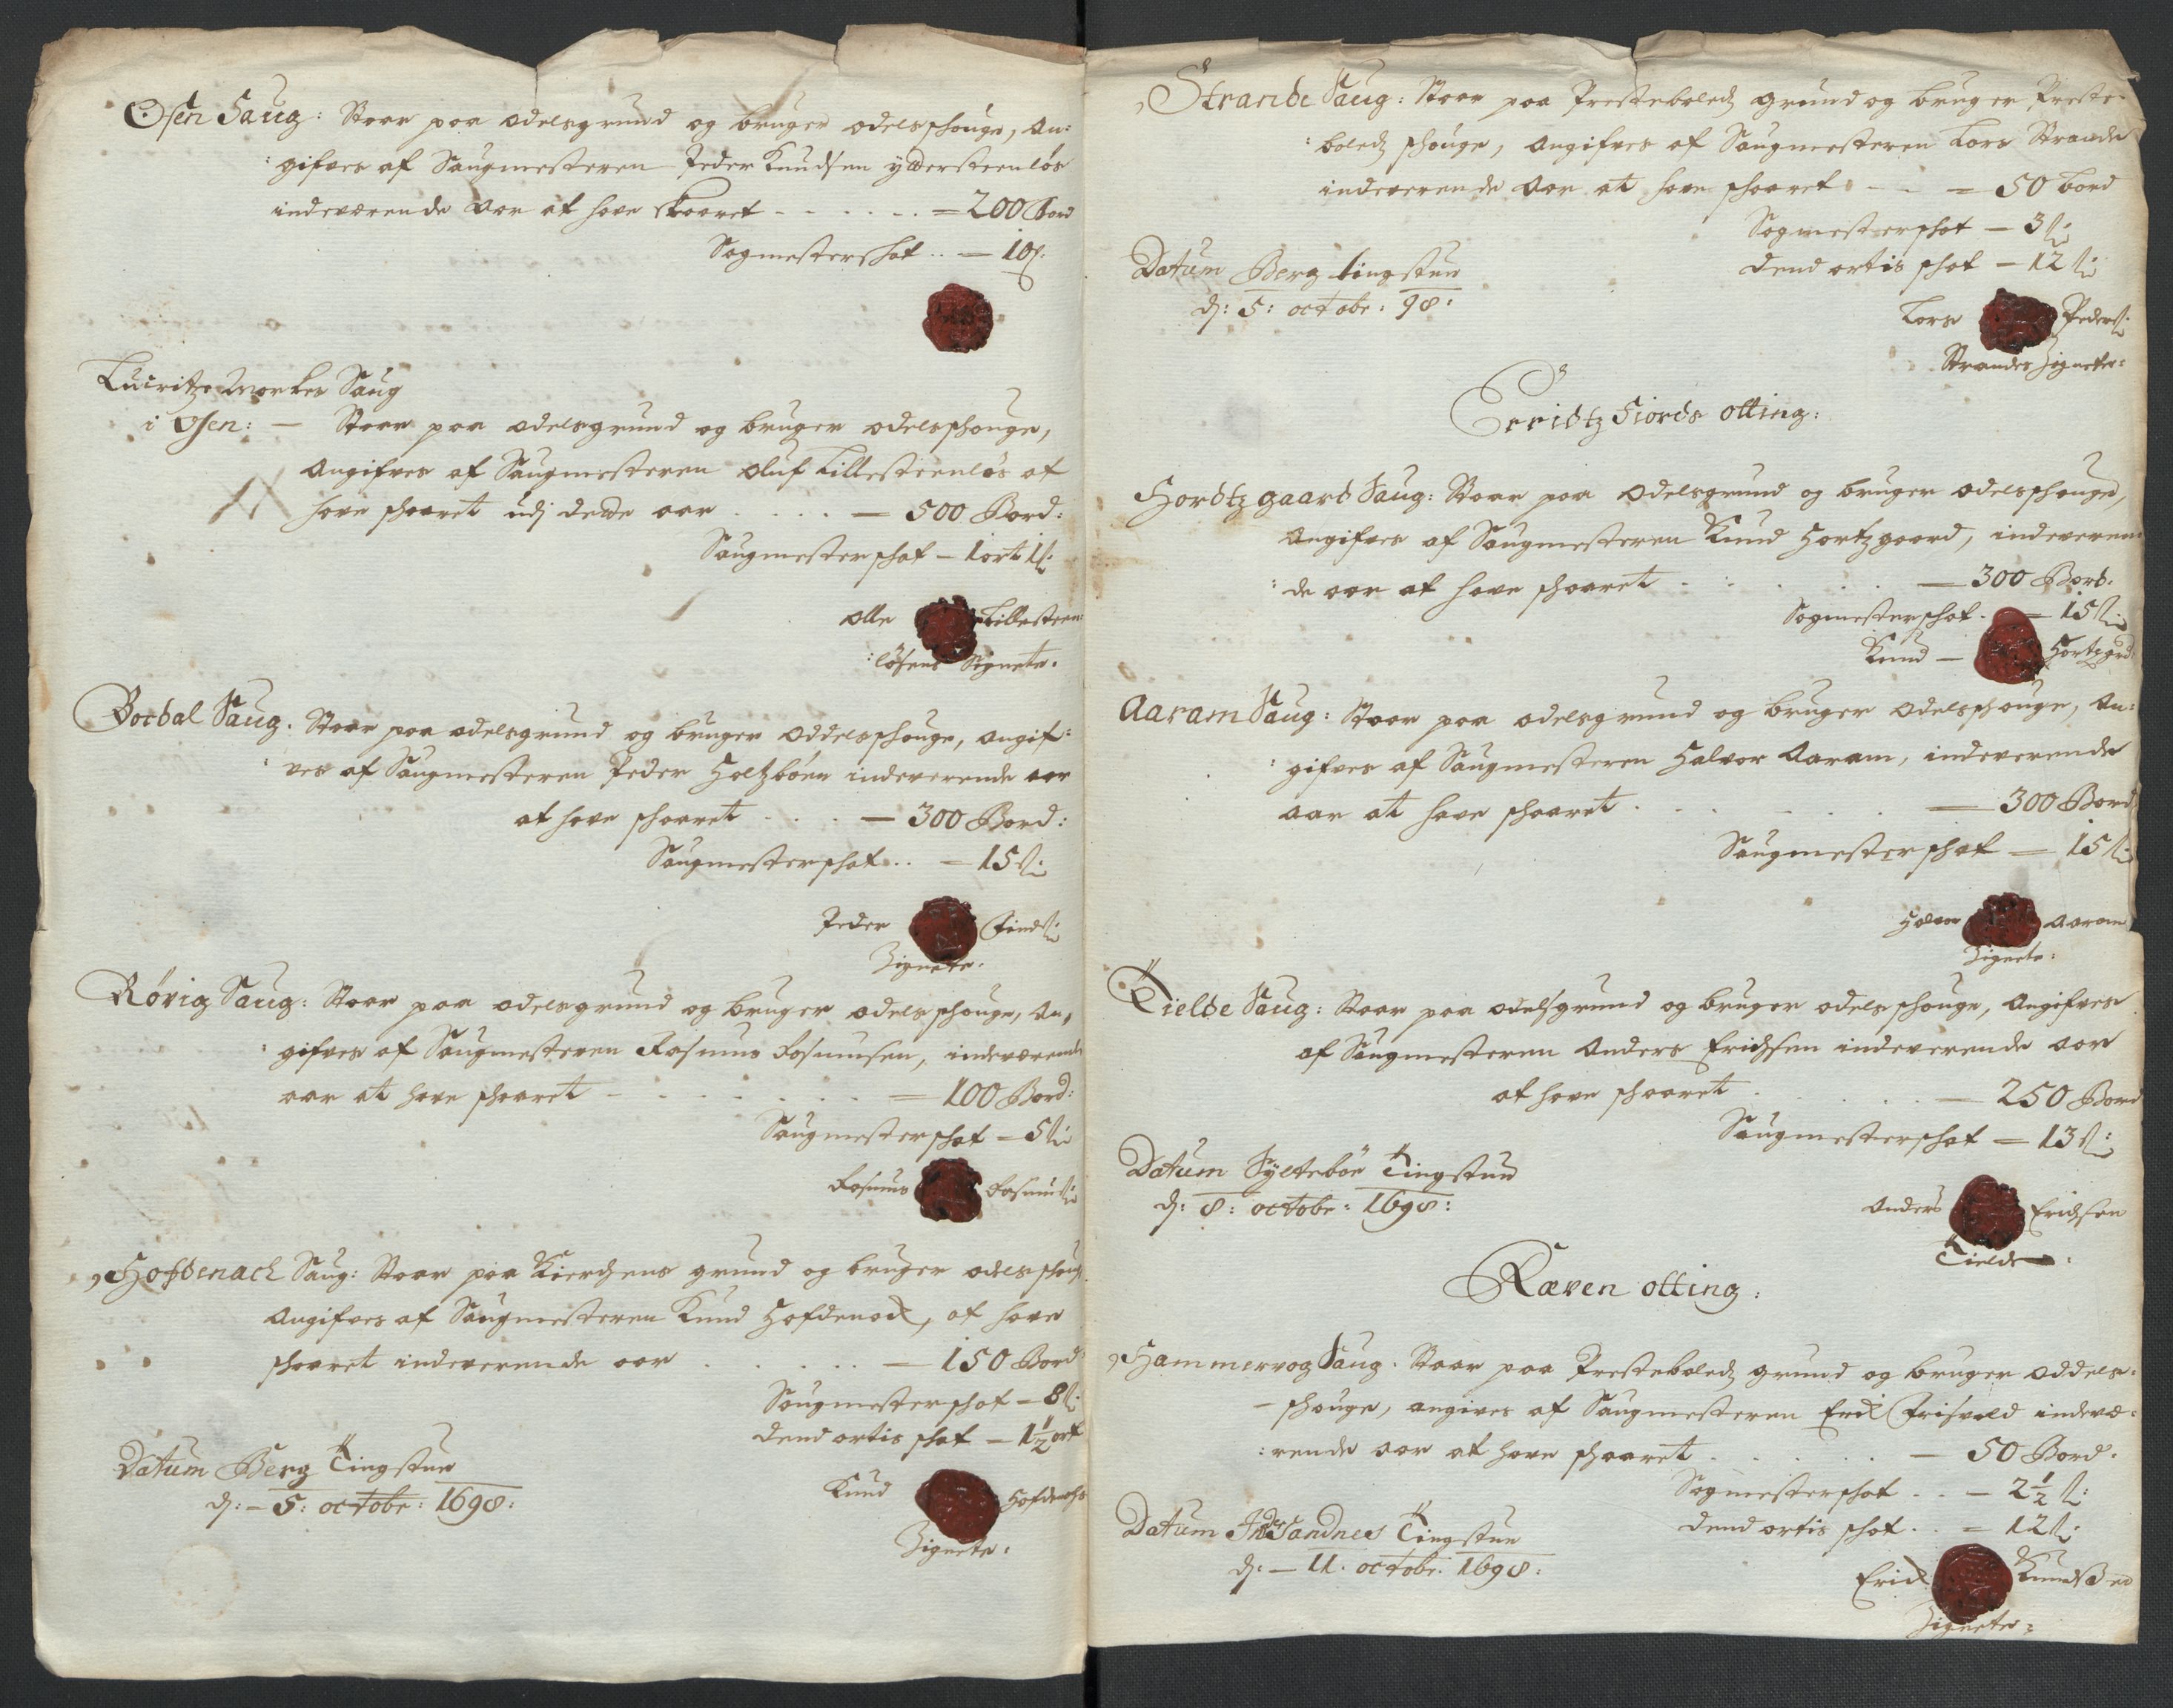 Osen Saug: Staar paa odelsgrund og bruger odelsschouge, an:
gifves af Saugmesteren Peder Knudsen ydersteenløs
indeværende Aar at have skaaret - - - - - = 200 Bord
Sagmesterschat .. — 10 s.
Lauritz Saug
i Osen: — Staar paa odelsgrund og bruger odelsschouge,
Angifves af Saugmesteren Oluf Lillesteenløs at
have schaaret udj dende aar . . . . — 500 Bord:
Saugmesterschat — 1 ort 1 s:
Olle Lillesteen:
:løsens Signete.
Bordal Saug. Staar paa odelsgrund og bruger oddelsschouge, angif:
ves af Saugmesteren Peder Holtzbøen indeverende aar
at have schaaret . . . — 300 Bord:
Saugmesterschat .. — 15 s:
Peder Finds:
Zignete.
Rørvig Saug: Staar paa odelsgrund og bruger odelsschouge, An,
:gifves af Saugmesteren Rasmus Rasmusen, indeværende
aar at have schaaret - - . . . . = 100 Bord:
Saugmesterschat = 5 s:
Rasmus Rasmus:
Hofdenach Saug: Staar paa Kierchens grund og bruger odelsschoug
Angifves af Saugmesteren Knud Hofdenach, at have
schaaret indeverende aar . . . . . — 150 Bord:
Saugmesterschat — 8 s:
dend ortis schat — 1½ ort
Datum Berg Tingstue
d: — 5: octobr: 1698:
Knud Hofdenachs
Zignete:
Strande Saug: Staar paa Presteboledz grund og bruger Preste-
:boledz schouge, Angifves af Saugmesteren Lars Strande
indeverende Aar at have schaaret - - = 50 bord
Sagmesterschat — 3 s:
dend ortis schat — 12 s:
Datum Berg tingstue
d: 5: octobr: 98:
Lars Peders:
Strandes Zignete:
Erridtzfiords otting:
Hordtzgaard Saug: Staar paa odelsgrund og bruger odelsschouge,
Angifves af Saugmesteren Knud Hortzgaard, indeveren:
:de aar at have schaaret . . . . — 300 Bord.
Sagmesterschat . = 15 s:
Knud — Hortzgrd:
Aaram Saug: Staar paa odelsgrund og bruger odelsschouge, An:
:gifves af Saugmesteren Halvor Aaram, indeverende
aar at have schaaret . . . . — 300 Bord
Saugmesterschat — 15 s:
Halvor Aaram
Zignete:
Tielde Saug: Staar paa odelsgrund og bruger odelsschouge, Angifves
af Saugmesteren Anders Erichsen indeverende aar
at have schaaret . . . . — 250 Bord
Saugmesterschat — 13 s:
Datum Syltebøe Tingstue
d: 8: octobr: 1698:
Anders Erichsen
Tielde:
Ræven otting:
Hammervog Saug. Staar paa Presteboledz grund og bruger oddels:
- schouge, angives af Saugmesteren Erik Frisvold indevæ:
:rende aar at have schaaret . . . . . — 50 Bord.
Sagmesterschat . . — 2½ s:
dend ortis schat . . = 12 s:
Datum Sandnes Tingstue
d: — 11. octobr. 1698:
Erich Knuds
Zignete: